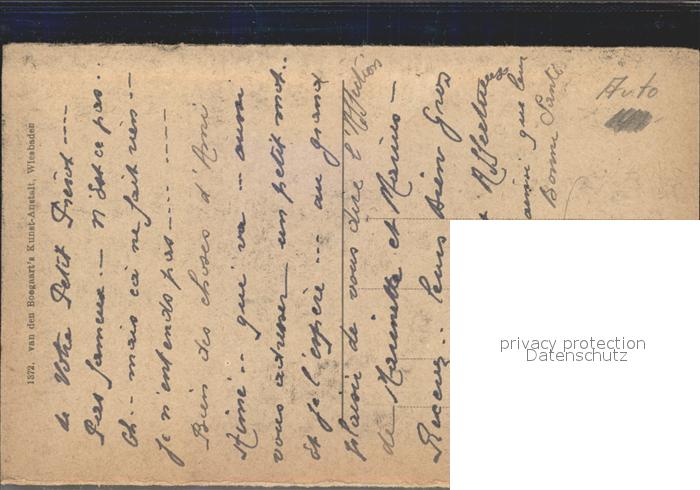 1372. van den Boogaart's Kunst-Anstalt, Wiesbaden
de Votre Petit
Pas fameux.- N'est ce pas..
Oh.- mais ça ne fait rien --
je n'entends pas ---
Bien des choses d'Ami
Aimé.- qui va - aussi
vous adresser un petit mot..
Et je l'espère ... au grand
plaisir de vous dire l'Affection
de Marinette et Marius -
Recevez.. leurs bien Gros
Affectueux
ainsi que leur
Bonne Santé
Auto
privacy protection
Datenschutz